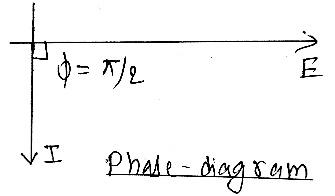 ϕ = π/2
E
I
Phase-diagram